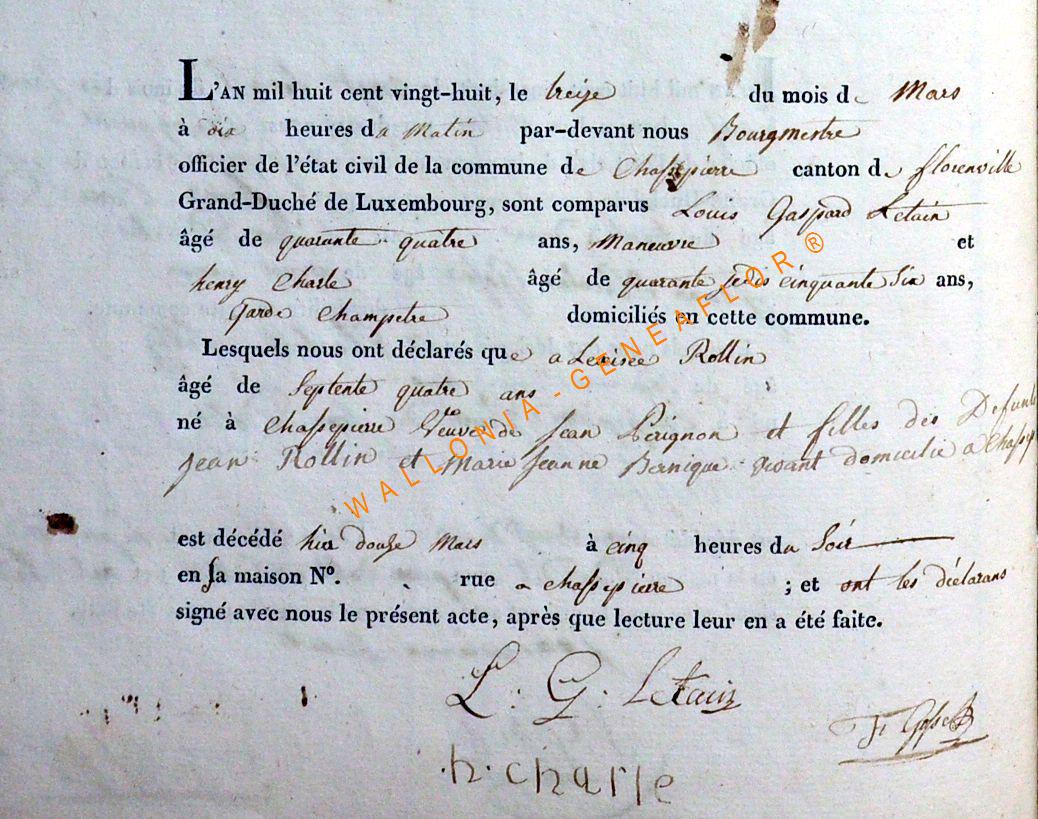 L'AN mil huit cent vingt-huit, le treize du mois de Mars
à dix heures du Matin par-devant nous Bourgmestre
officier de l'état civil de la commune de Chassepierre canton de florenville
Grand-Duché de Luxembourg, sont comparus Louis Gaspard Letain
âgé de quarante quatre ans, Maneuvre et
henry Charle âgé de quarante jedis cinquante Six ans,
Garde Champetre domiciliés en cette commune.
Lesquels nous ont déclarés que Rollin
âgé de Septente quatre ans
né à Chassepierre Veuve de Jean Pérignon et filles des Defunts
Jean Rollin et Marie Jeanne Bernique vivant domicilié a Chassep
est décédé hier douze Mars à cinq heures du Soir
en sa maison N°. rue a chassepierre ; et ont les déclarans
signé avec nous le présent acte, après que lecture leur en a été faite.
L. G. Letain
h. charle
WALLONIA - GENEAFLOR ®